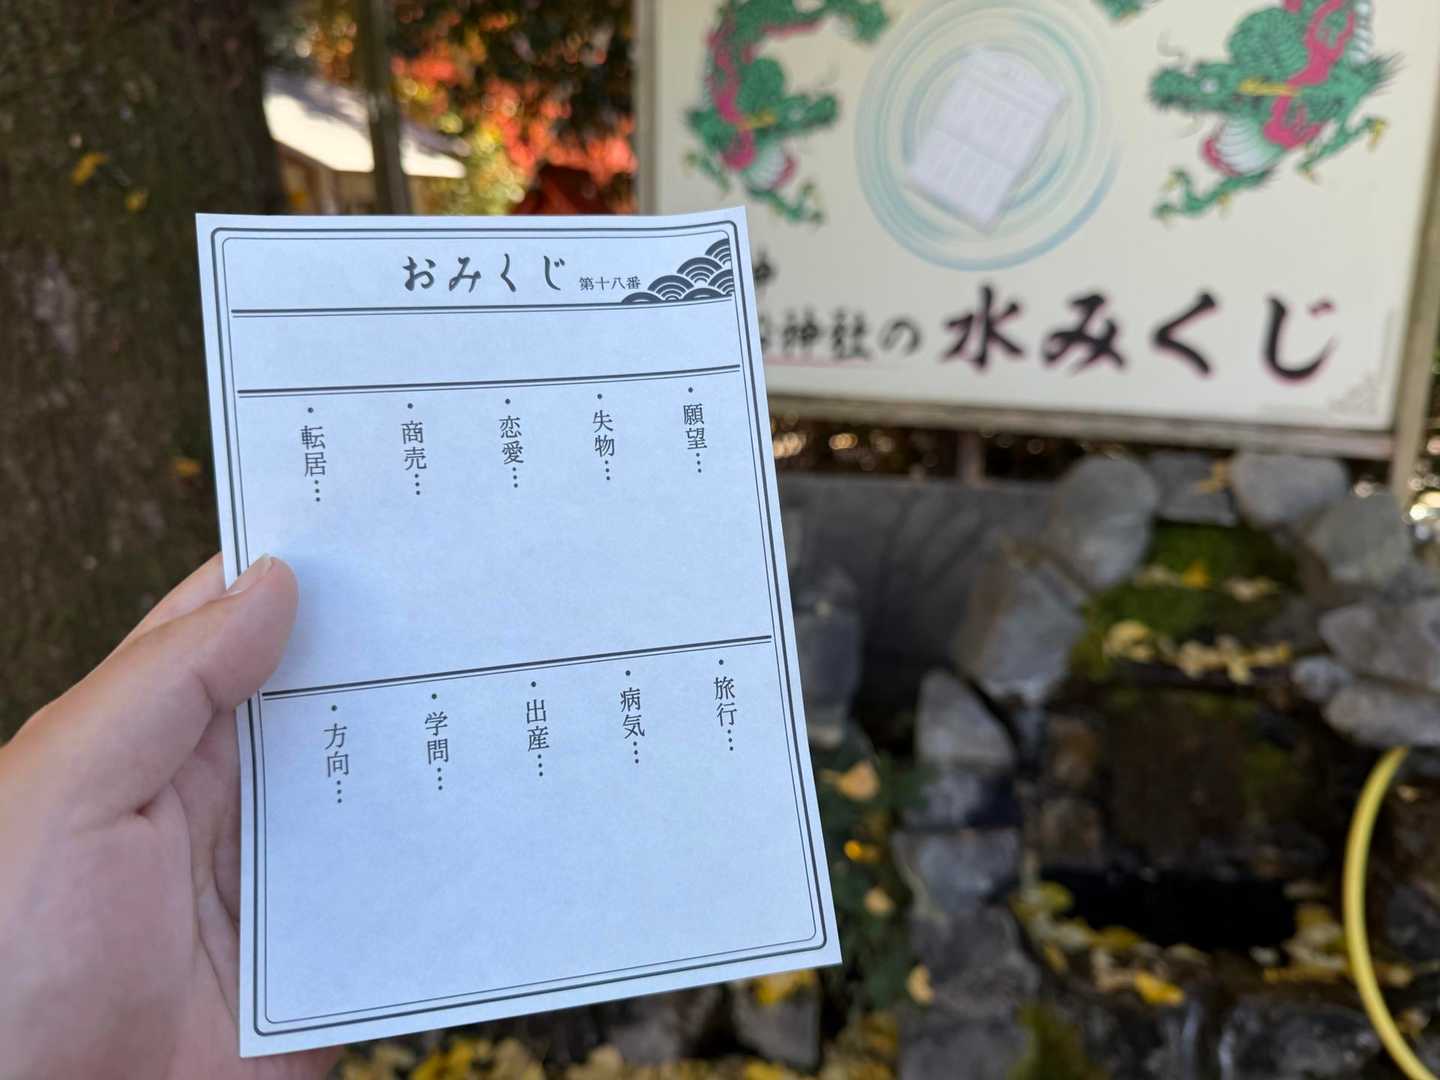 おみくじ 第十八番
・願望…
・失物…
・恋愛…
・商売…
・転居…
・旅行…
・病気…
・出産…
・学問…
・方向…
神社の水みくじ